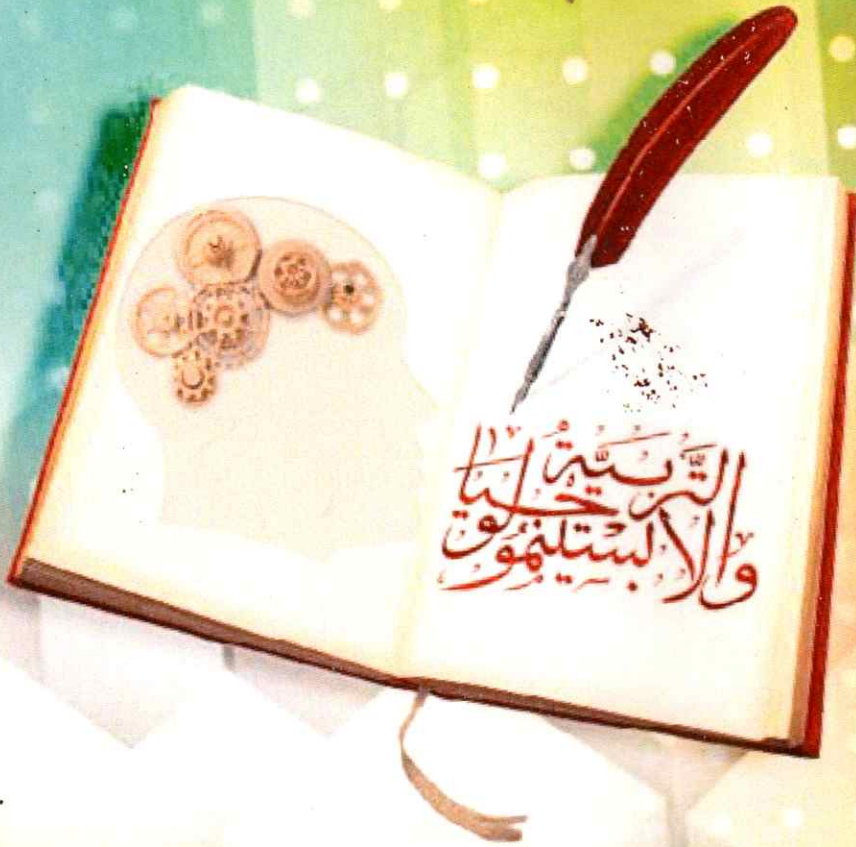 التَّربيَّة
والابستيمُولوُجيا